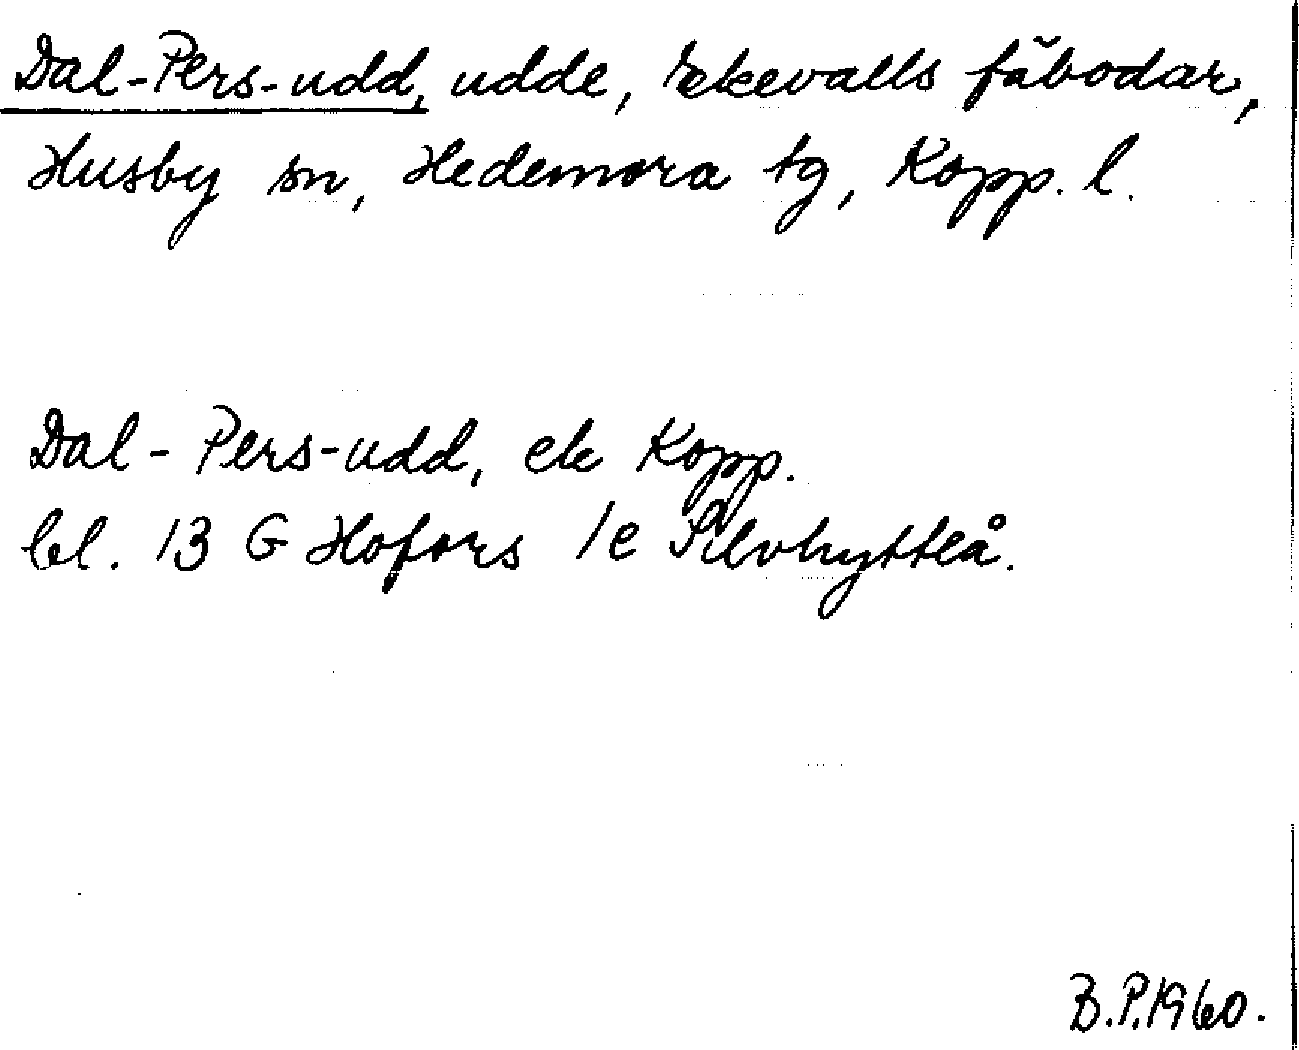 Dal-Pers-udd, udde, Ekevalls fäbodar,
Husby sn, Hedemora tg, Kopp. l.
Dal-Pers-udd, ek Kopp.
bl. 13 G Hofors 1e Silvhytteå.
B.P. 1960.